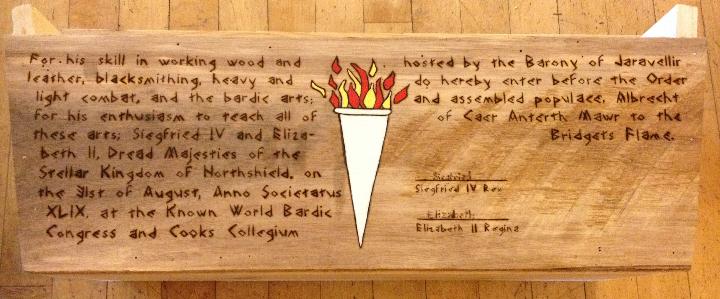 For his skill in working wood and
leather, blacksmithing, heavy and
light combat, and the bardic arts;
for his enthusiasm to teach all of
these arts; Siegfried IV and Eliza-
beth II, Dread Majesties of the
Stellar Kingdom of Northshield, on
the 31st of August, Anno Societatus
XLIX, at the Known World Bardic
Congress and Cooks Collegium
hosted by the Barony of Jaravellir
do hereby enter before the Order
and assembled populace, Albrecht
of Caer Anterth Mawr to the
Bridget's Flame.
Siegfried
Siegfried IV Rex
Elizabeth
Elizabeth II Regina